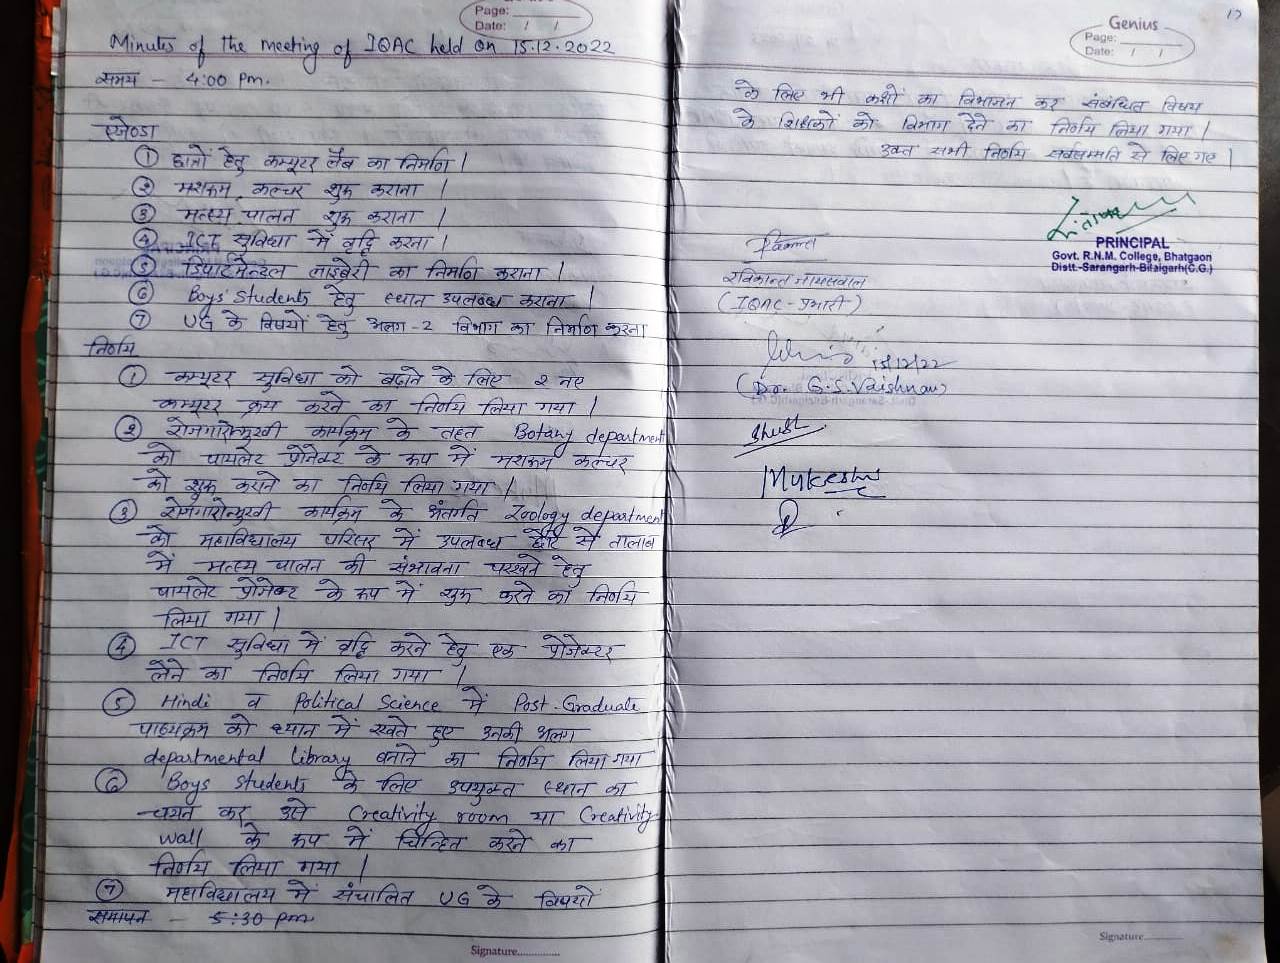 Page:
Date: / /
Minutes of the meeting of IQAC held on 15.12.2022
समय - 4:00 Pm.
एजेण्डा
① छात्रों हेतु कम्प्यूटर लैब का निर्माण।
② मशरूम कल्चर शुरू कराना।
③ मत्स्य पालन शुरू कराना।
④ ICT सुविधा में वृद्धि करना।
⑤ डिपार्टमेन्टल लाइब्रेरी का निर्माण कराना।
⑥ Boys' Students हेतु स्थान उपलब्ध कराना।
⑦ UG के विषयों हेतु अलग-2 विभाग का निर्माण करना
निर्णय
① कम्प्यूटर सुविधा को बढ़ाने के लिए 2 नए
कम्प्यूटर क्रय करने का निर्णय लिया गया।
② रोजगारोन्मुखी कार्यक्रम के तहत Botany department
को पायलेट प्रोजेक्ट के रूप में मशरूम कल्चर
को शुरू कराने का निर्णय लिया गया।
③ रोजगारोन्मुखी कार्यक्रम के अंतर्गत Zoology department
को महाविद्यालय परिसर में उपलब्ध छोटे से तालाब
में मत्स्य पालन की संभावना परखने हेतु
पायलेट प्रोजेक्ट के रूप में शुरू करने का निर्णय
लिया गया।
④ ICT सुविधा में वृद्धि करने हेतु एक प्रोजेक्टर
लेने का निर्णय लिया गया।
⑤ Hindi व Political Science में Post-Graduate
पाठ्यक्रम को ध्यान में रखते हुए उनकी अलग
departmental library बनाने का निर्णय लिया गया
⑥ Boys Students के लिए उपयुक्त स्थान का
चयन कर उसे Creativity room या Creativity
wall के रूप में चिन्हित करने का
निर्णय लिया गया।
⑦ महाविद्यालय में संचालित UG के विषयों
समापन - 5:30 pm
Signature..............
Genius
Page:
Date: / /
के लिए भी कक्षों का विभाजन कर संबंधित विषय
के शिक्षकों को विभाग देने का निर्णय लिया गया।
उक्त सभी निर्णय सर्वसम्मति से लिए गए।
PRINCIPAL
Govt. R.N.M. College, Bhatgaon
Distt.-Sarangarh-Bilaigarh(C.G.)
(IQAC-प्रभारी)
15/12/22
(Dr. G.S. Vaishnav)
Mukesh
Signature..............